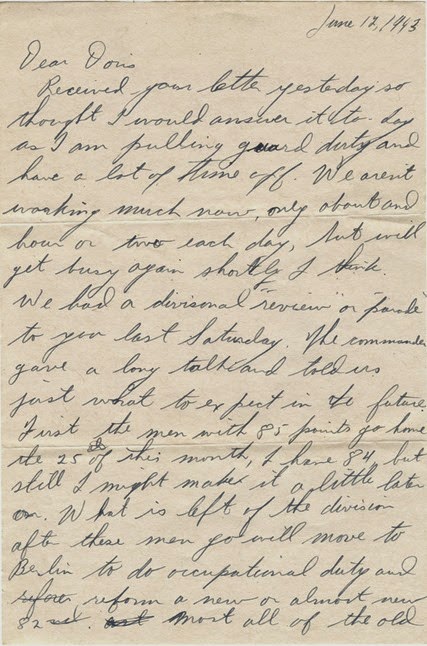 June 12, 1943
Dear Doris
Received your letter yesterday so
thought I would answer it to-day
as I am pulling guard duty and
have a lot of time off. We aren't
working much now, only about and
hour or two each day, but will
get busy again shortly I think.
We had a divisonal "review" or "parade"
to you last Saturday. The commander
gave a long talk and told us
just what to expect in the future.
First the men with 85 points go home
the 25 of this month, I have 84 but
still I might make it a little later
on. What is left of the division
after these men go will move to
Berlin to do occupational duty and
reform a new or almost new
82nd. Most all of the old